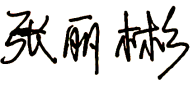 张丽彬